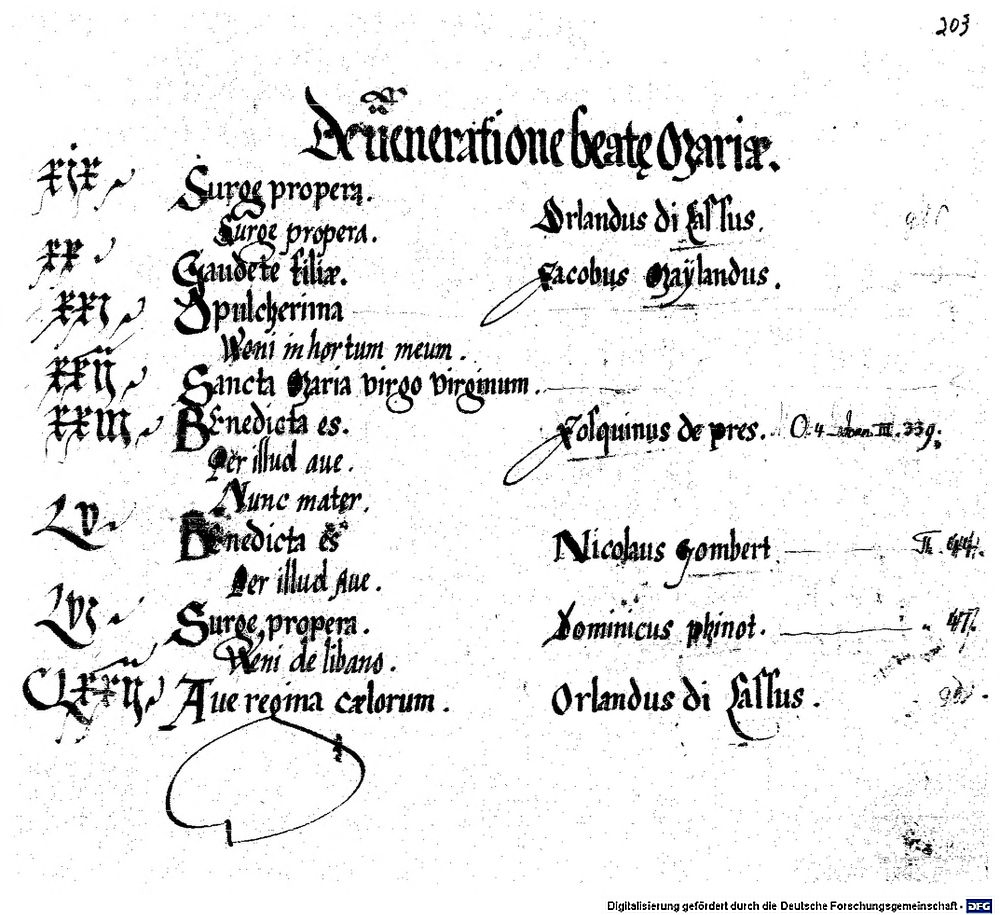 203
De veneratione beatę Mariæ.
xix Surge propera. Orlandus di Lassus.
Surge propera.
xx Gaudete filiæ. Jacobus Maÿlandus.
xxi O pulcherima
Weni in hortum meum.
xxij Sancta Maria virgo virginum.
xxiii Benedicta es. Josquinus de pres. O. 4 III. 339.
Per illud aue.
Nunc mater.
Lv Benedicta es Nicolaus Gombert II. 44.
Per illud Aue.
Lvi Surge propera. Dominicus phinot. " 47.
Weni de libano.
CLxxij Aue regina cælorum. Orlandus di Lassus.
Digitalisierung gefördert durch die Deutsche Forschungsgemeinschaft - DFG